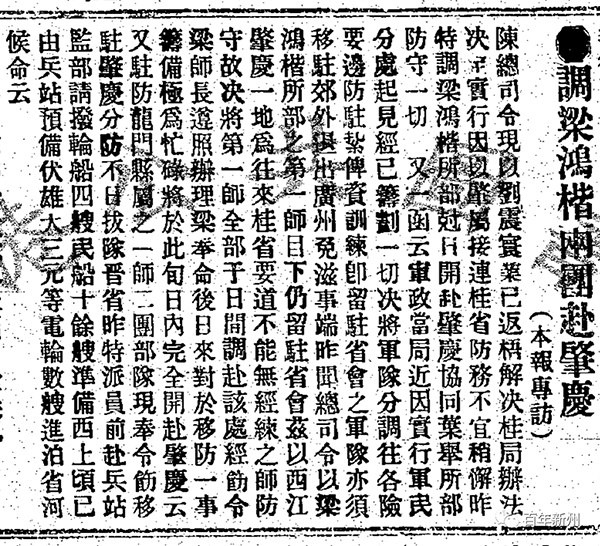 ●調梁鴻楷兩團赴肇慶
（本報專訪）
陳總司令現以劉震寰業已返梧解决桂局辦法
决定實行因以肇屬接連桂省防務不宜稍懈昨
特調梁鴻楷所部尅日開赴肇慶協同葉舉所部
防守一切　又一函云軍政當局近因實行軍民
分處起見經已籌劃一切决將軍隊分調往各險
要邊防駐紮俾資訓練卽留駐省會之軍隊亦須
移駐郊外俱出廣州免滋事端昨聞總司令以梁
鴻楷所部之第一師目下仍留駐省會茲以西江
肇慶一地爲往來桂省要道不能無經練之師防
守故决將第一師全部于日間調赴該處經飭令
梁師長遵照辦理梁奉命後日來對於移防一事
籌備極爲忙碌將於此旬日內完全開赴肇慶云
又駐防龍門縣屬之一師二團部隊現奉令飭移
駐肇慶分防不日拔隊晋省昨特派員前赴兵站
監部請撥輪船四艘民船十餘艘準備西上頃已
由兵站預備伏雄大三元等電輪數艘進泊省河
候命云
百年新州